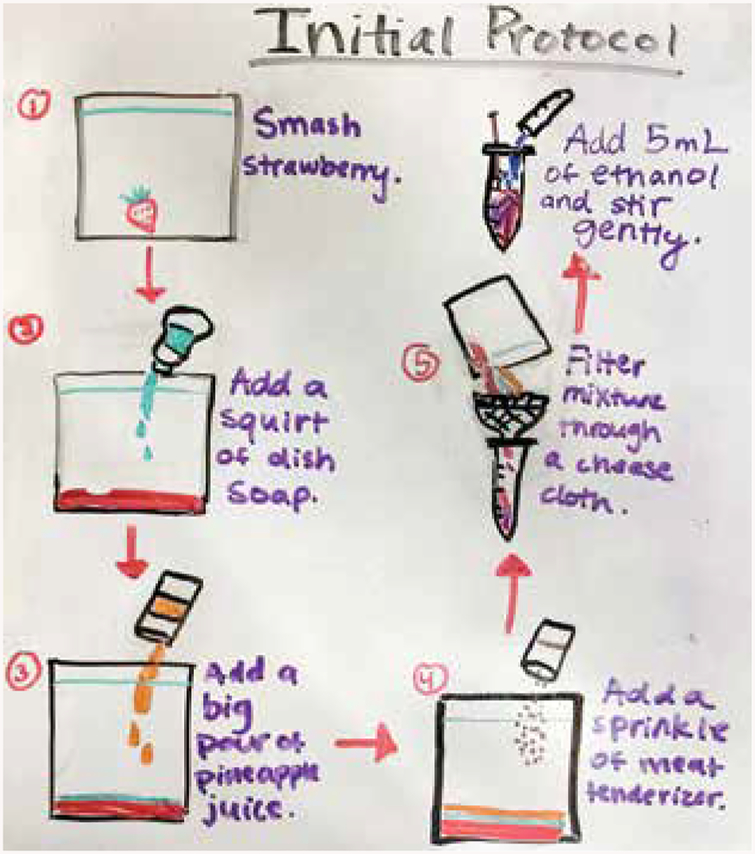 Initial Protocol
1
Smash
strawberry.
2
Add a
squirt
of dish
soap.
3
Add a
big
pour of
pineapple
juice.
4
Add a
sprinkle
of meat
tenderizer.
5
Filter
mixture
through
a cheese
cloth.
Add 5mL
of ethanol
and stir
gently.